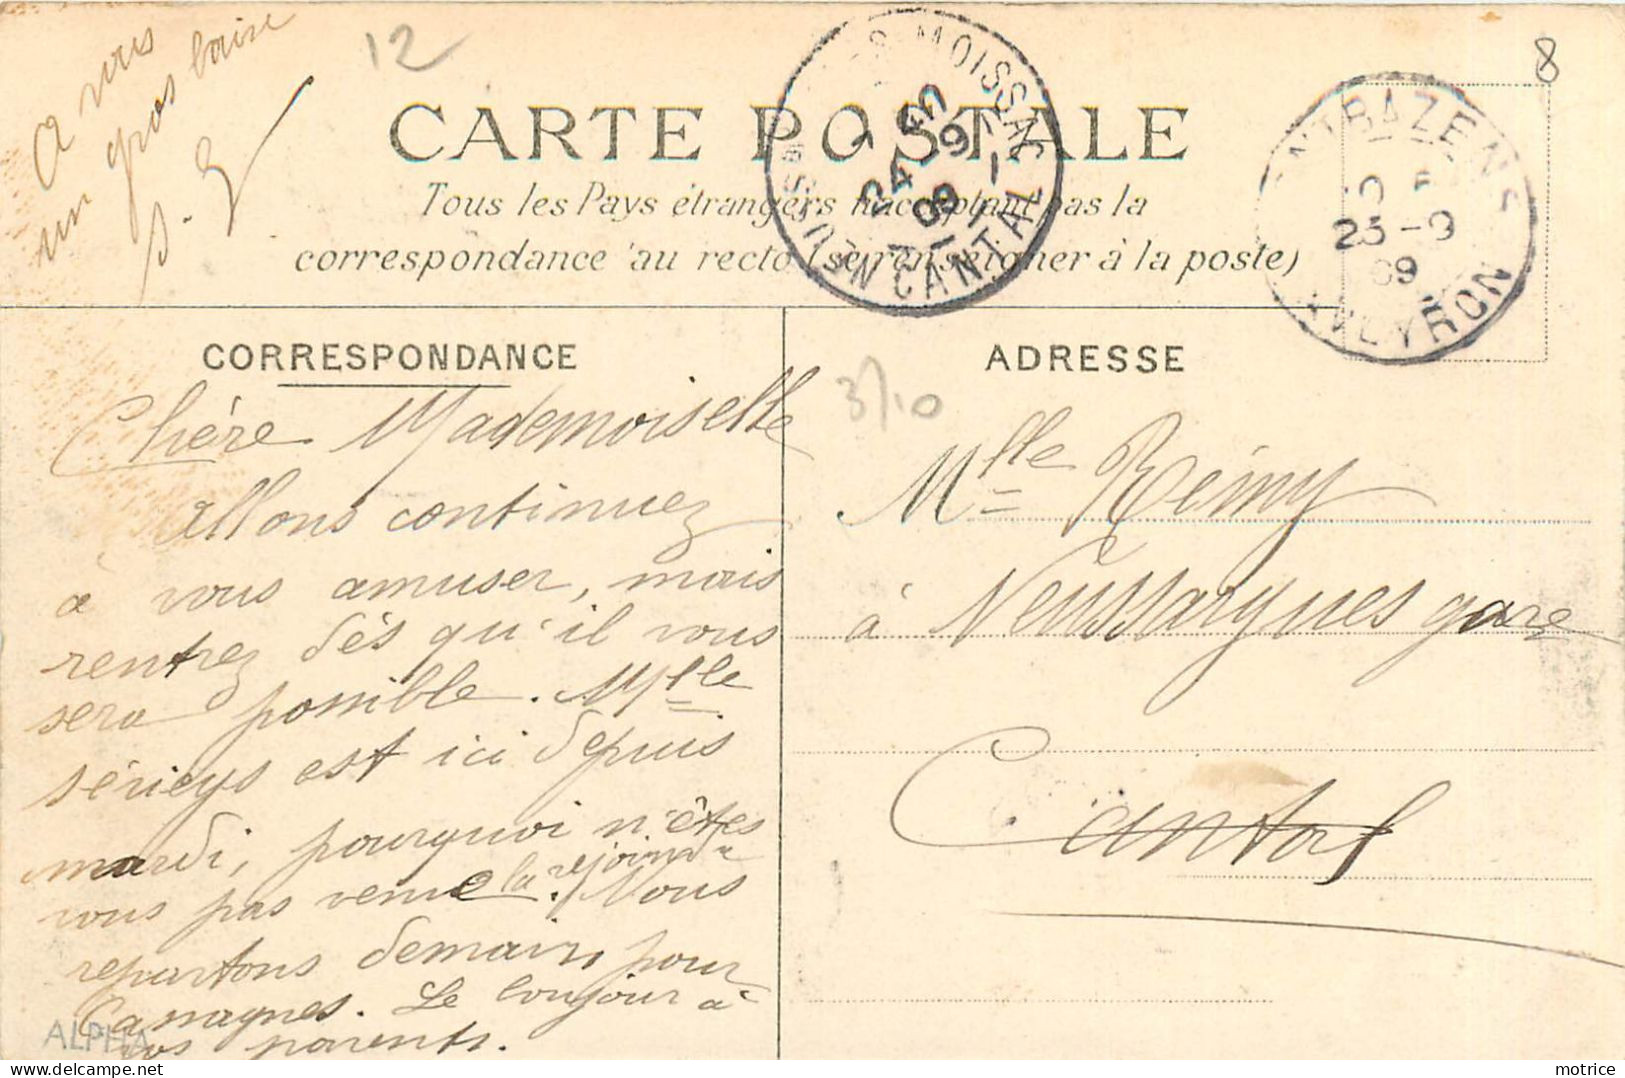 A vous
un gros baiser
S. G
12
8
CARTE POSTALE
Tous les Pays étrangers n'acceptant pas la
correspondance au recto (se renseigner à la poste)
MOISSAC
24-9
09
NEUSSAR
CANTAL
MONTBAZENS
25-9
09
AVEYRON
CORRESPONDANCE
Chère Mademoiselle
allons continuez
à vous amuser, mais
rentrez dès qu'il vous
sera possible. Mlle
Sérieys est ici depuis
mardi, pourquoi n'êtes
vous pas venue la rejoindre. Nous
repartons demain pour
Le bonjour à
vos parents.
ALPHA
ADRESSE
3/10
Mlle Rémy
à Neussargues gare
Cantal
motrice